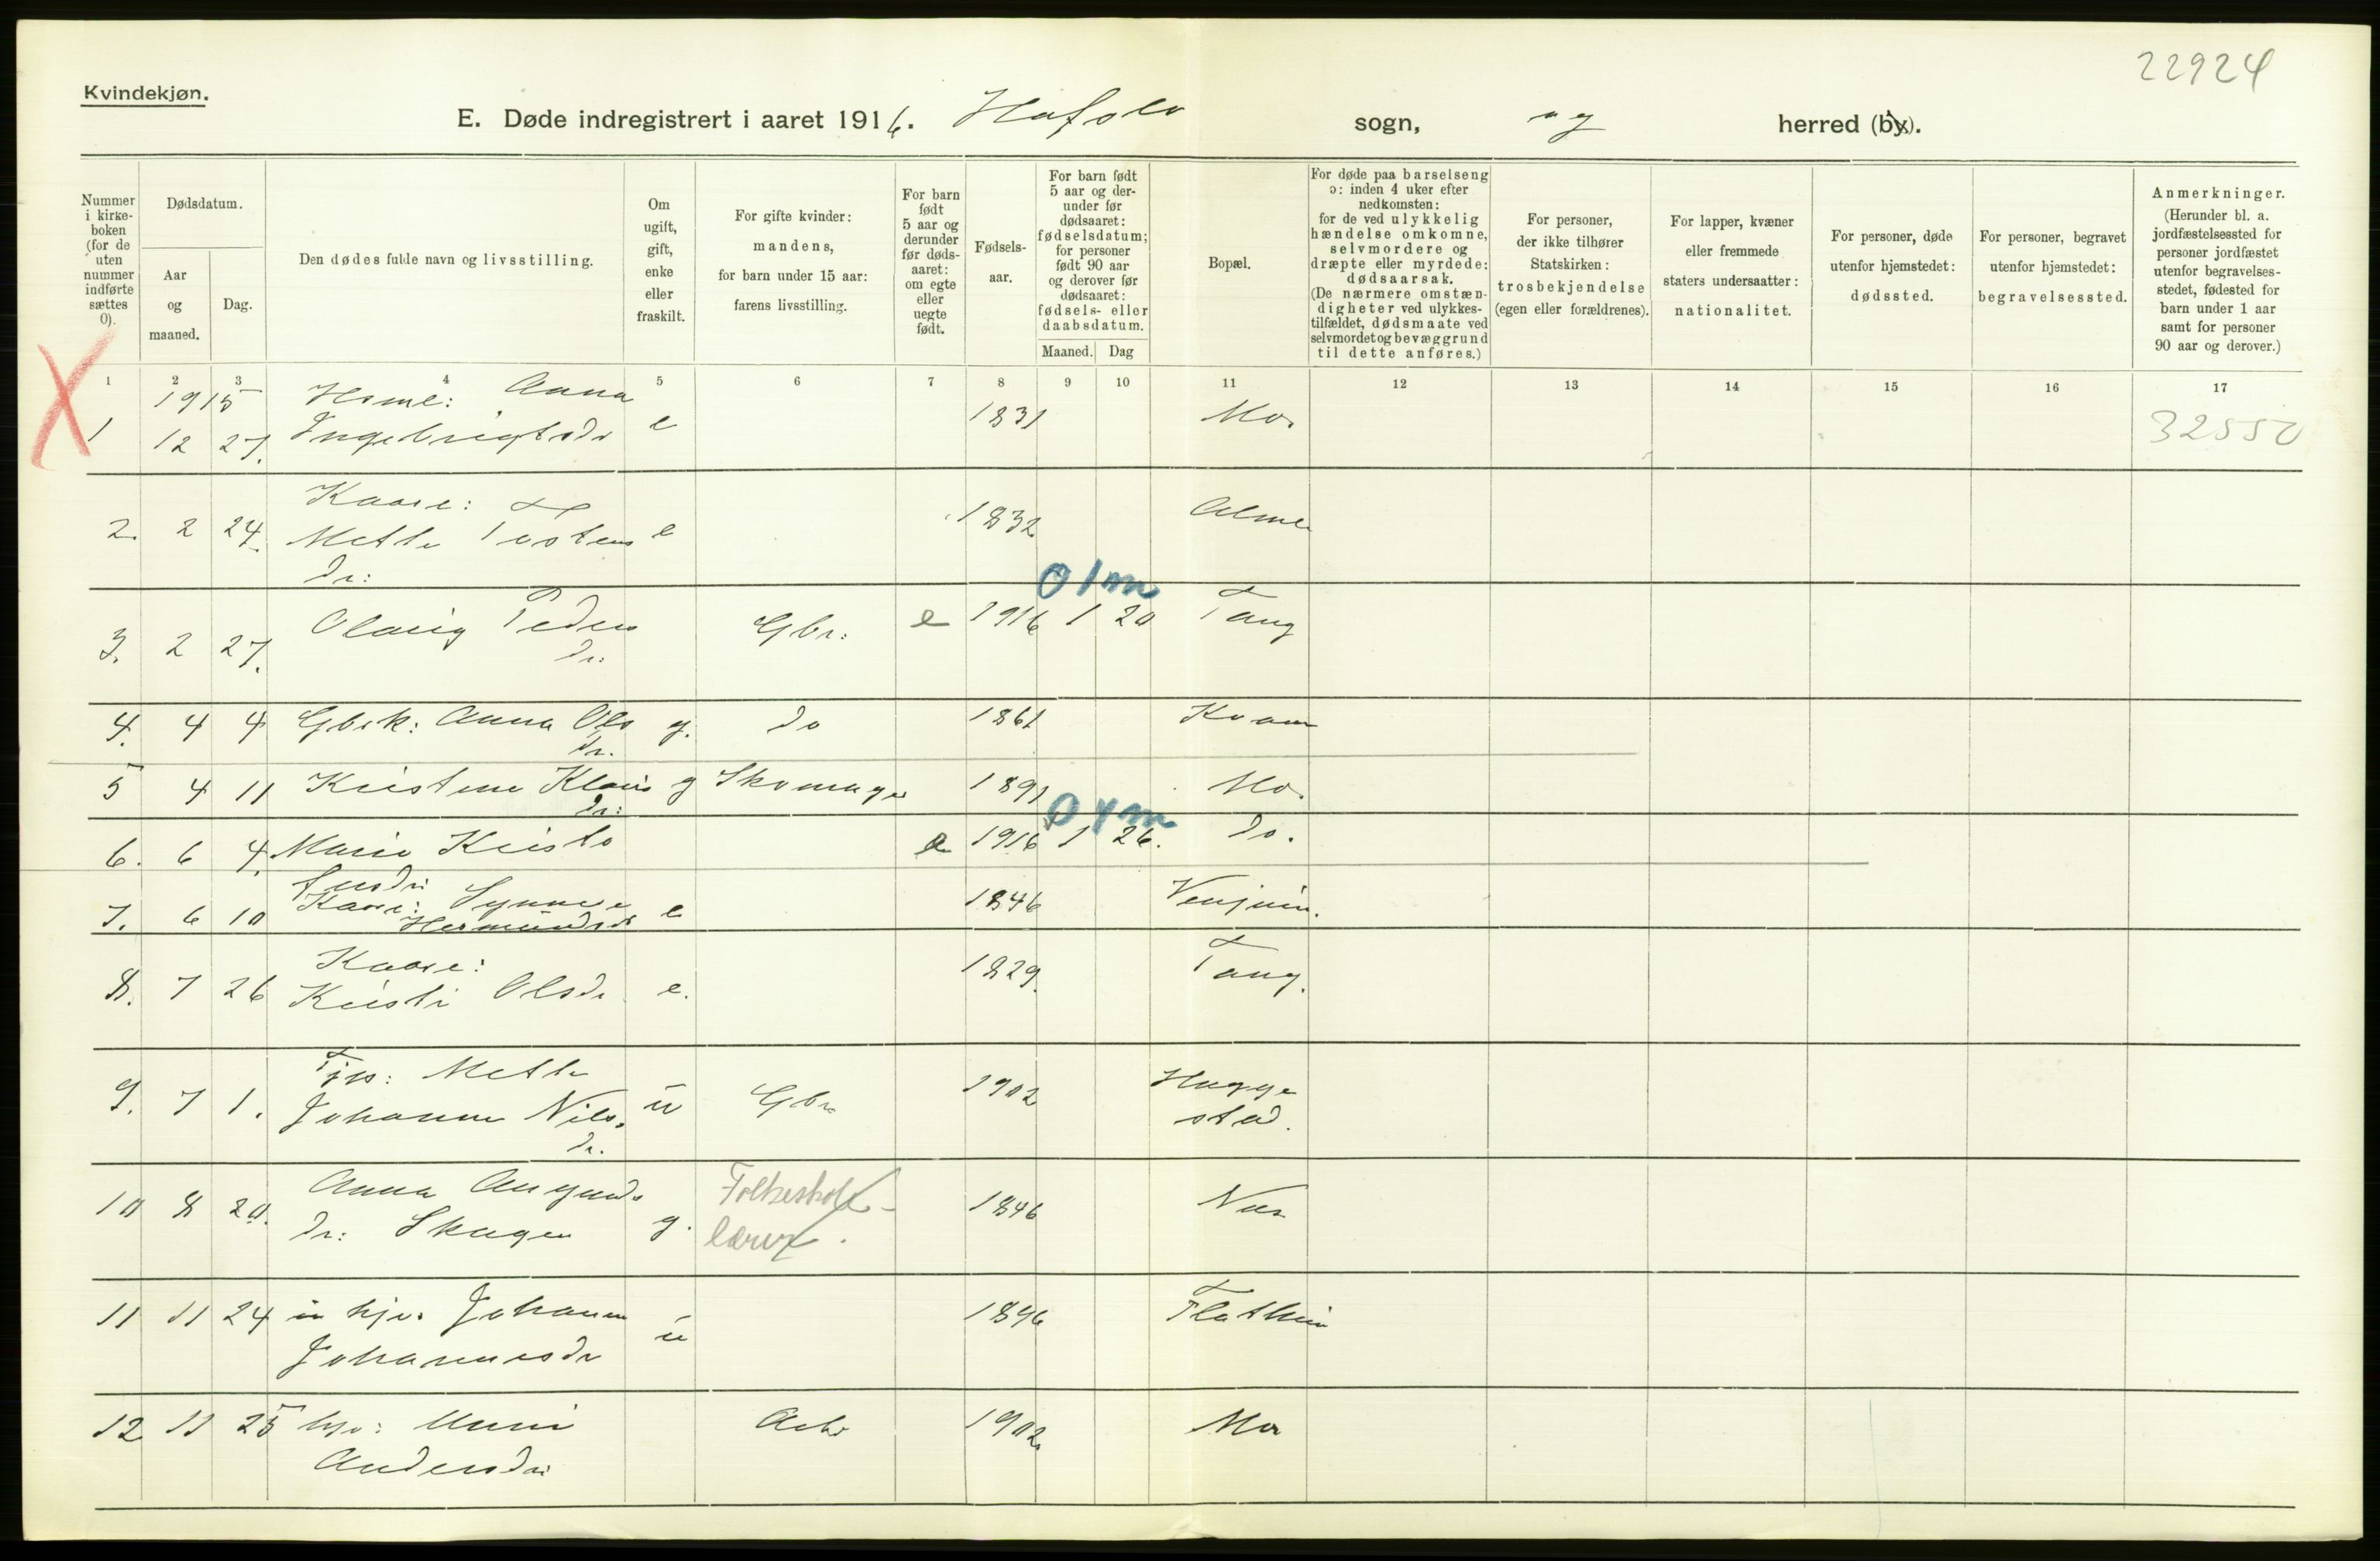 22924
Kvindekjøn.
E. Døde indregistrert i aaret 1916. Hafslo sogn, og herred (by).
Nummer i kirke-boken (for de uten nummer indførte sættes 0).
Dødsdatum.
Aar og maaned.
Dag.
Den dødes fulde navn og livsstilling.
Om ugift, gift, enke eller fraskilt.
For gifte kvinder: mandens, for barn under 15 aar: farens livsstilling.
For barn født 5 aar og derunder før døds-aaret: om egte eller uegte født.
Fødsels-aar.
For barn født 5 aar og der-under før dødsaaret: fødselsdatum; for personer født 90 aar og derover før dødsaaret: fødsels- eller daabsdatum.
Maaned. Dag
Bopæl.
For døde paa barselseng ɔ: inden 4 uker efter nedkomsten: for de ved ulykkelig hændelse omkomne, selvmordere og dræpte eller myrdede: dødsaarsak. (De nærmere omstæn-digheter ved ulykkes-tilfældet, dødsmaate ved selvmordet og bevæggrund til dette anføres.)
For personer, der ikke tilhører Statskirken: trosbekjendelse (egen eller forældrenes).
For lapper, kvæner eller fremmede staters undersaatter: nationalitet.
For personer, døde utenfor hjemstedet: dødssted.
For personer, begravet utenfor hjemstedet: begravelsessted.
Anmerkninger. (Herunder bl. a. jordfæstelsessted for personer jordfæstet utenfor begravelses-stedet, fødested for barn under 1 aar samt for personer 90 aar og derover.)
1 2 3 4 5 6 7 8 9 10 11 12 13 14 15 16 17
1915 Anna
1 12 27. Ingebrigtsdr e 1831 Mo. 32550
Kaare:
2. 2 24. Mette Tostens e 1832 Alme
dr:
0 1 m
3. 2 27. Olaug Peders Gbr: e 1916 1 20 Tang
dr:
4. 4 4 Gbrk: Anna Ols g. do 1861 Kvam
dr.
5 4 11 Kristine Klaus g Skomager 1891 Mo.
dr:
0 4 m
6. 6 4. Marie Kristo e 1916 1 26. do.
fersdr:
7. 6 10 Kaare: Synneve e 1846 Venjum.
Hermundsdr
Kaare:
8. 7 26 Kristi Olsdr e. 1829. Tang.
9. 7 1. Mette
Johanne Nils. u Gbr 1902 Hagge
dr. stad.
10 8 20. Anna Amunds Folkeskole-
dr: Skagen g. lærer. 1846 Nes
11 11 24 Johanne
Johannesdr u 1896 Flathim
12 11 25 Unni Arb 1902 Mo
Andersdr: